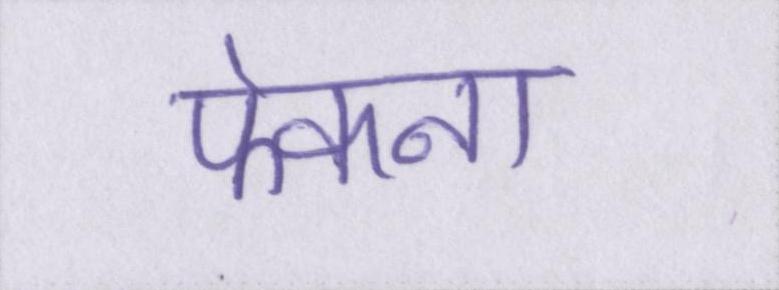 फेकना